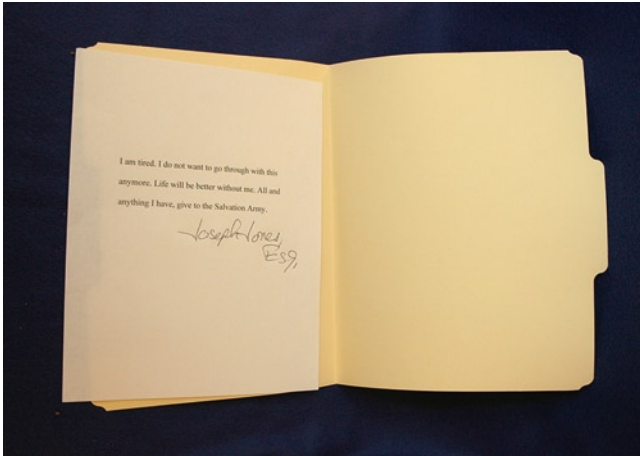 I am tired. I do not want to go through with this
anymore. Life will be better without me. All and
anything I have, give to the Salvation Army.
Joseph Jones,
Esq,